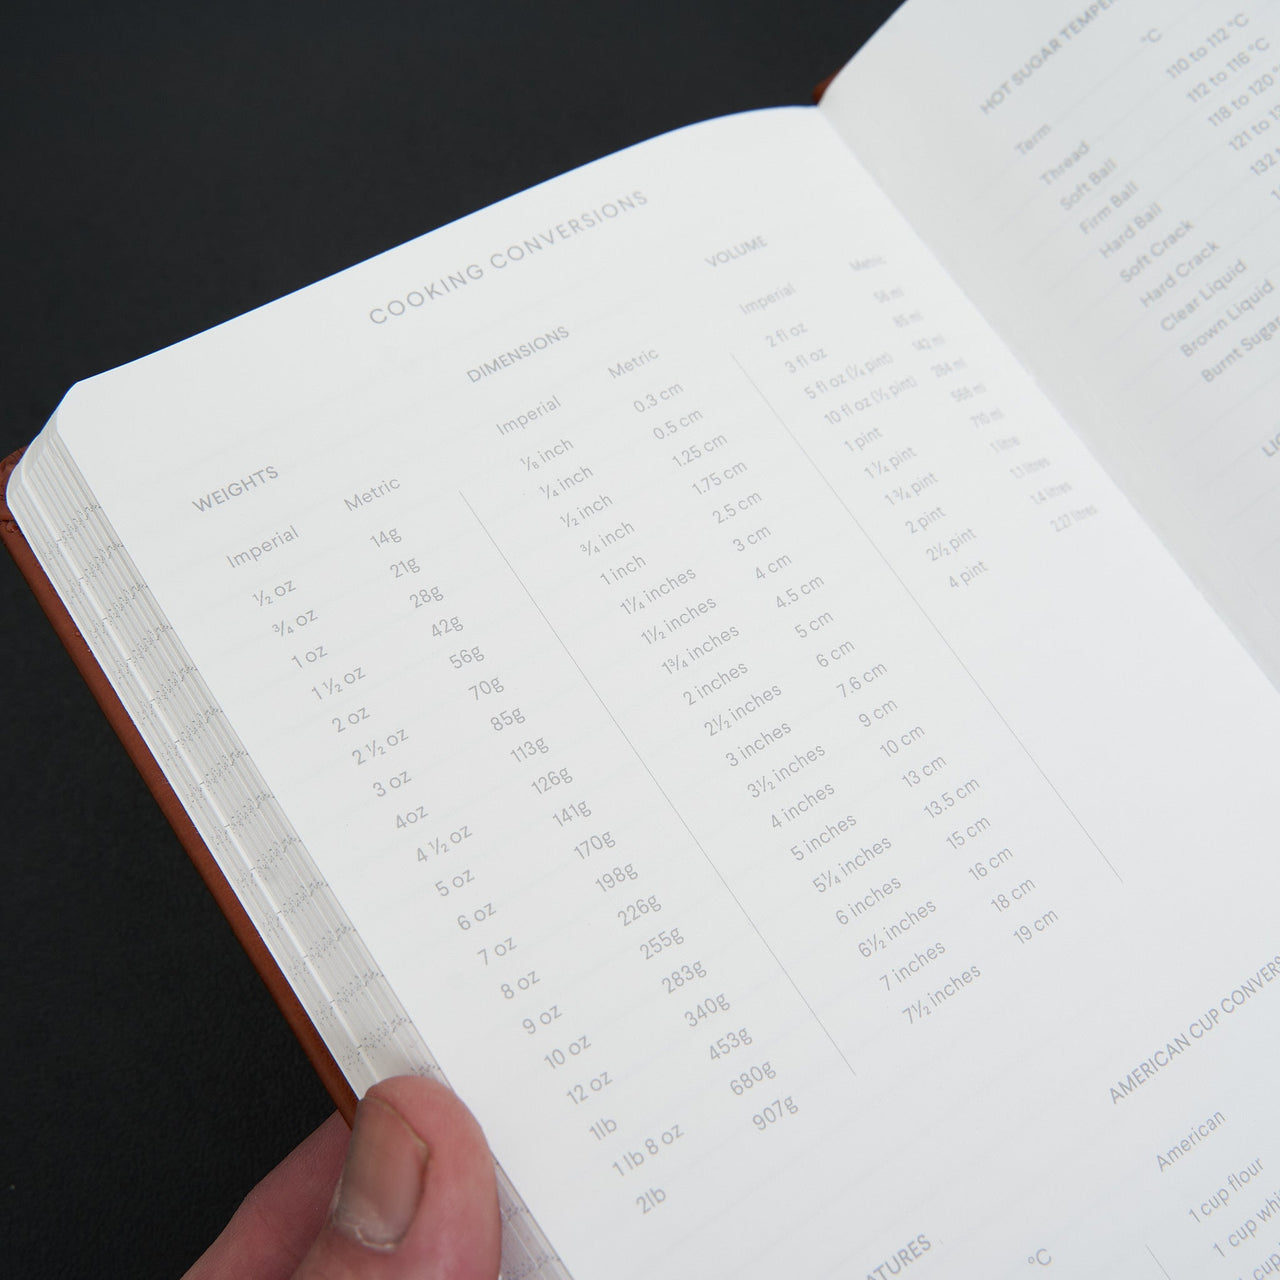 COOKING CONVERSIONS
WEIGHTS
Imperial Metric
½ oz 14g
¾ oz 21g
1 oz 28g
1 ½ oz 42g
2 oz 56g
2 ½ oz 70g
3 oz 85g
4oz 113g
4 ½ oz 126g
5 oz 141g
6 oz 170g
7 oz 198g
8 oz 226g
9 oz 255g
10 oz 283g
12 oz 340g
1lb 453g
1 lb 8 oz 680g
2lb 907g
DIMENSIONS
Imperial Metric
⅛ inch 0.3 cm
¼ inch 0.5 cm
½ inch 1.25 cm
¾ inch 1.75 cm
1 inch 2.5 cm
1¼ inches 3 cm
1½ inches 4 cm
1¾ inches 4.5 cm
2 inches 5 cm
2½ inches 6 cm
3 inches 7.6 cm
3½ inches 9 cm
4 inches 10 cm
5 inches 13 cm
5¼ inches 13.5 cm
6 inches 15 cm
6½ inches 16 cm
7 inches 18 cm
7½ inches 19 cm
VOLUME
Imperial Metric
2 fl oz 56 ml
3 fl oz 85 ml
5 fl oz (¼ pint) 142 ml
10 fl oz (½ pint) 284 ml
1 pint 568 ml
1¼ pint 710 ml
1¾ pint 1 litre
2 pint 1.1 litres
2½ pint 1.4 litres
4 pint 2.27 litres
ATURES
°C
AMERICAN CUP CONVERS
American
1 cup flour
1 cup whi
cup
HOT SUGAR TEMPE
Term °C
Thread 110 to 112 °C
Soft Ball 112 to 116 °C
Firm Ball 118 to 120 °
Hard Ball 121 to 1
Soft Crack 132 t
Hard Crack 1
Clear Liquid
Brown Liquid
Burnt Sugar
LI